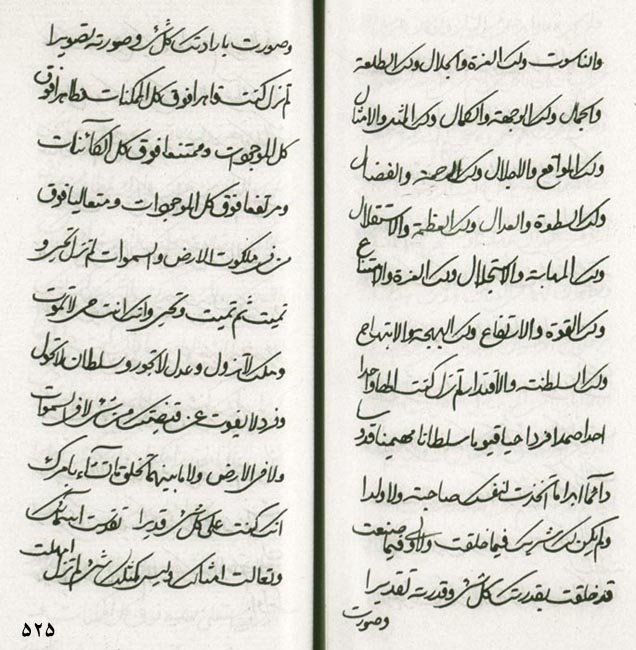 والناسوت ولك العزة والجلال ولك الطلعة
والجمال ولك الوجهة والكمال ولك المثل والامثال
ولك المواقع والاجلال ولك الرحمة والفضال
ولك السطوة والعدال ولك العظمة والاستقلال
ولك المهابة والاستجلال ولك العزة والامتناع
ولك القوة والارتفاع ولك البهجة والابتهاج
ولك السلطنة والاقتدار لم تزل كنت الها واحدا
احدا صمدا فردا حيا قيوما سلطانا مهيمنا قدوسا
دائما ابدا ما اتخذت لنفسك صاحبة ولا ولدا
ولم يكن لك شريك فيما خلقت ولا ولي فيما صنعت
قد خلقت بقدرتك كل شيء وقدرته تقديرا
وصورت
وصورت بارادتك كل شيء وصورته تصويرا
لم تزل كنت قاهرا فوق كل الممكنات وظاهرا فوق
كل الموجودات وممتنعا فوق كل الكائنات
ومرتفعا فوق كل الموجودات ومتعاليا فوق
من في ملكوت الارض والسموات لم تزل تحيي و
تميت ثم تميت وتحيي وانك انت حي لا تموت
وملك لا تزول وعدل لا تجور وسلطان لا تحول
وفرد لا يفوت عن قبضتك من شيء لا في السموات
ولا في الارض ولا ما بينهما تخلق ما تشاء بامرك
انك كنت على كل شيء قديرا تقدست اسمائك
وتعالت امثالك وليس كمثلك شيء لم تزل
٥٢٥